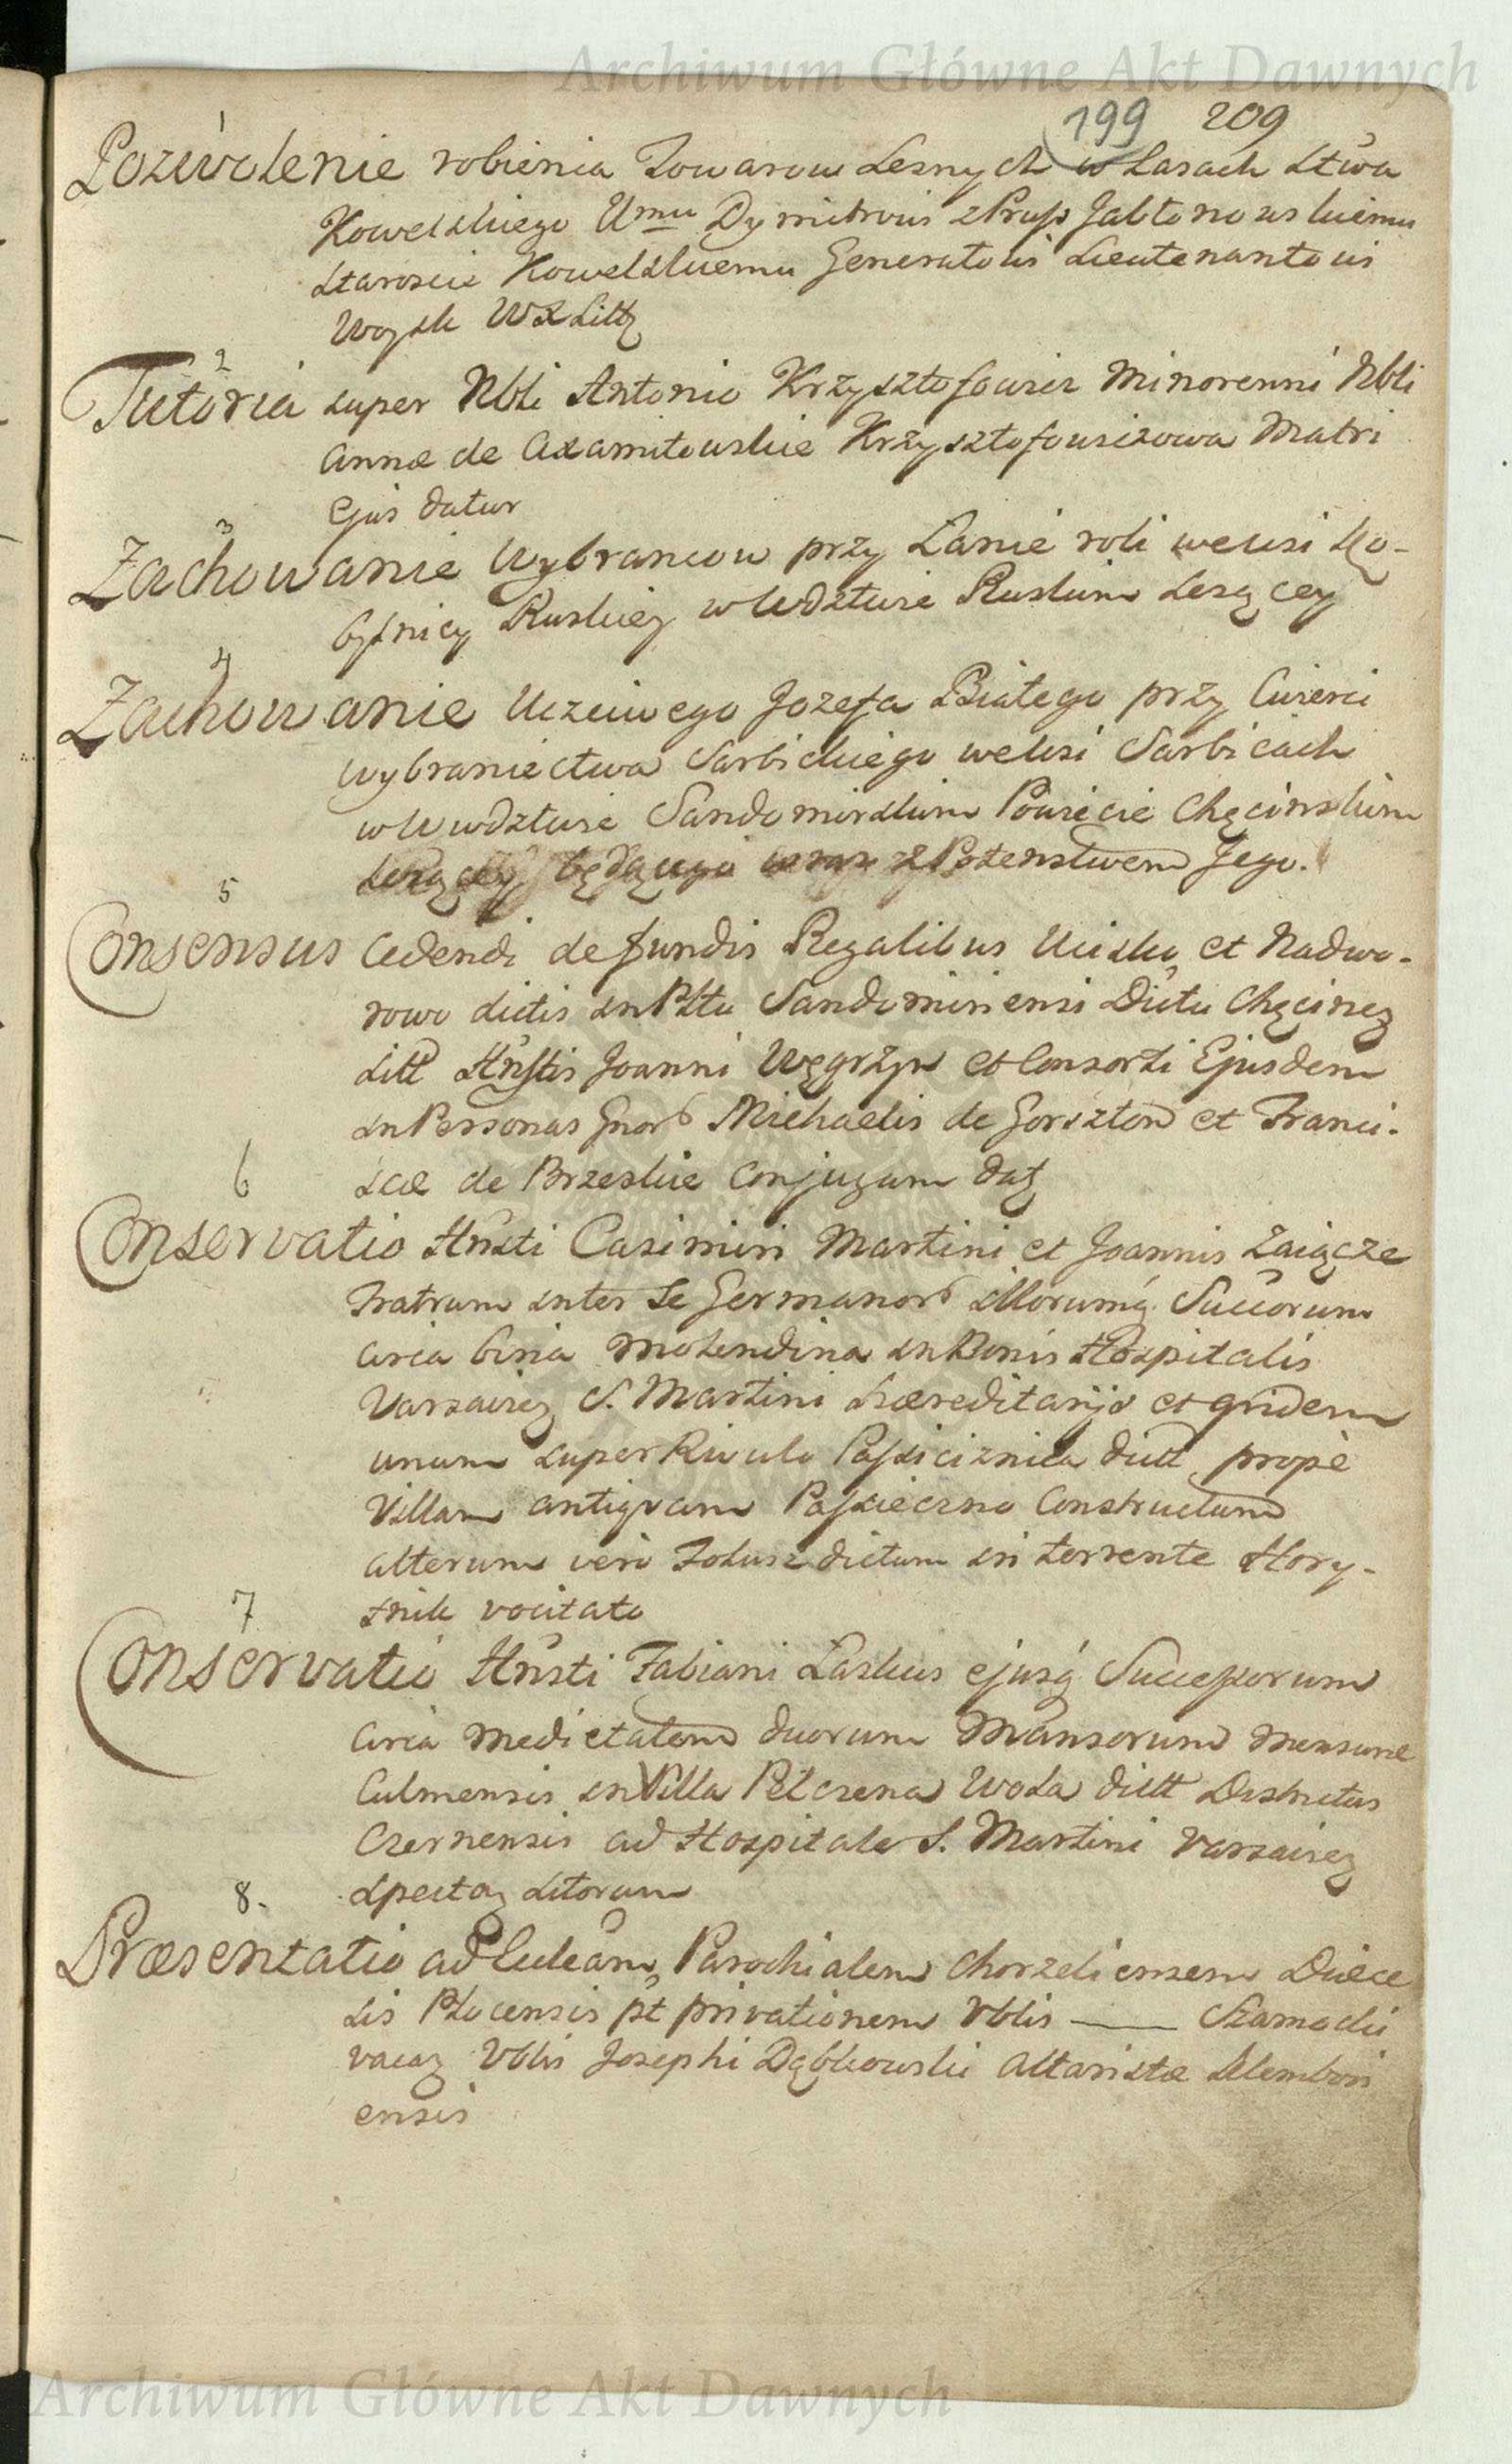 Archiwum Główne Akt Dawnych
199 209
1
Pozwolenie robienia Towarow Lesnych w Lasach Stwa
Kowelskiego Umu Dymitrowi z Prus Jabłonowskiemu
Staroscie Kowelskiemu Generałowi Lieutenantowi
Woysk WXLitt
2
Tutoria super Nbli Antonio Krzysztofowicz Minorenni Nbli
Annæ de Axamitowskie Krzysztofowiczowa Matri
Ejus datur
3
Zachowanie Wybrancow przy Łanie roli we wsi Ko-
bylnicy Ruskiey w Wdztwie Ruskim Lezącey
4
Zachowanie Uczciwego Jozefa Białego przy Cwierci
Wybraniectwa Sarbickiego we wsi Sarbicach
w Wwdztwie Sandomirskim Powiecie Chęcinskim
Lezącey będącego wraz z Potenstwem Jego.
5
Consensus Cedendi de fundis Regalibus Uisko et Nadwo-
rowo dictis in Pttu Sandomiriensi Dittu Chęcinen
Sitt Hnstis Joanni Węgrzyn et Consorti Ejusdem
in Personas Gnor Michaelis de Gorszton et Franci-
scæ de Brzeskie Conjugum dat
6
Conservatio Hnsti Casimiri Martini et Joannis Zaiącze
Fratrum inter se Germanor illorumq Succorum
circa bina molendina in Bonis Hospitalis
Varsavien S. Martini hæreditarijs et quidem
unum super Rivulo Passiciznica dict prope
Villam antiquam Passieczno Constructum
alterum vero Zolusz dictum in torrente Hory-
znik vocitato
7
Conservatio Hnsti Fabiani Laskus ejusq Successorum
circa Medietatem duorum Mansorum mensuræ
Culmensis in Villa Pelczena Woda dict Districtus
Czernensis ad Hospitale S. Martini Varsavien
spectan sitorum
8.
Præsentatio ad Eccleam Parochialem Chorzeliensem Diæce
sis Plocensis pt privationem Vblis ——— Szamocki
vacan Vblis Josephi Dąbkowski Altaristæ Klembovi
ensis
Archiwum Główne Akt Dawnych